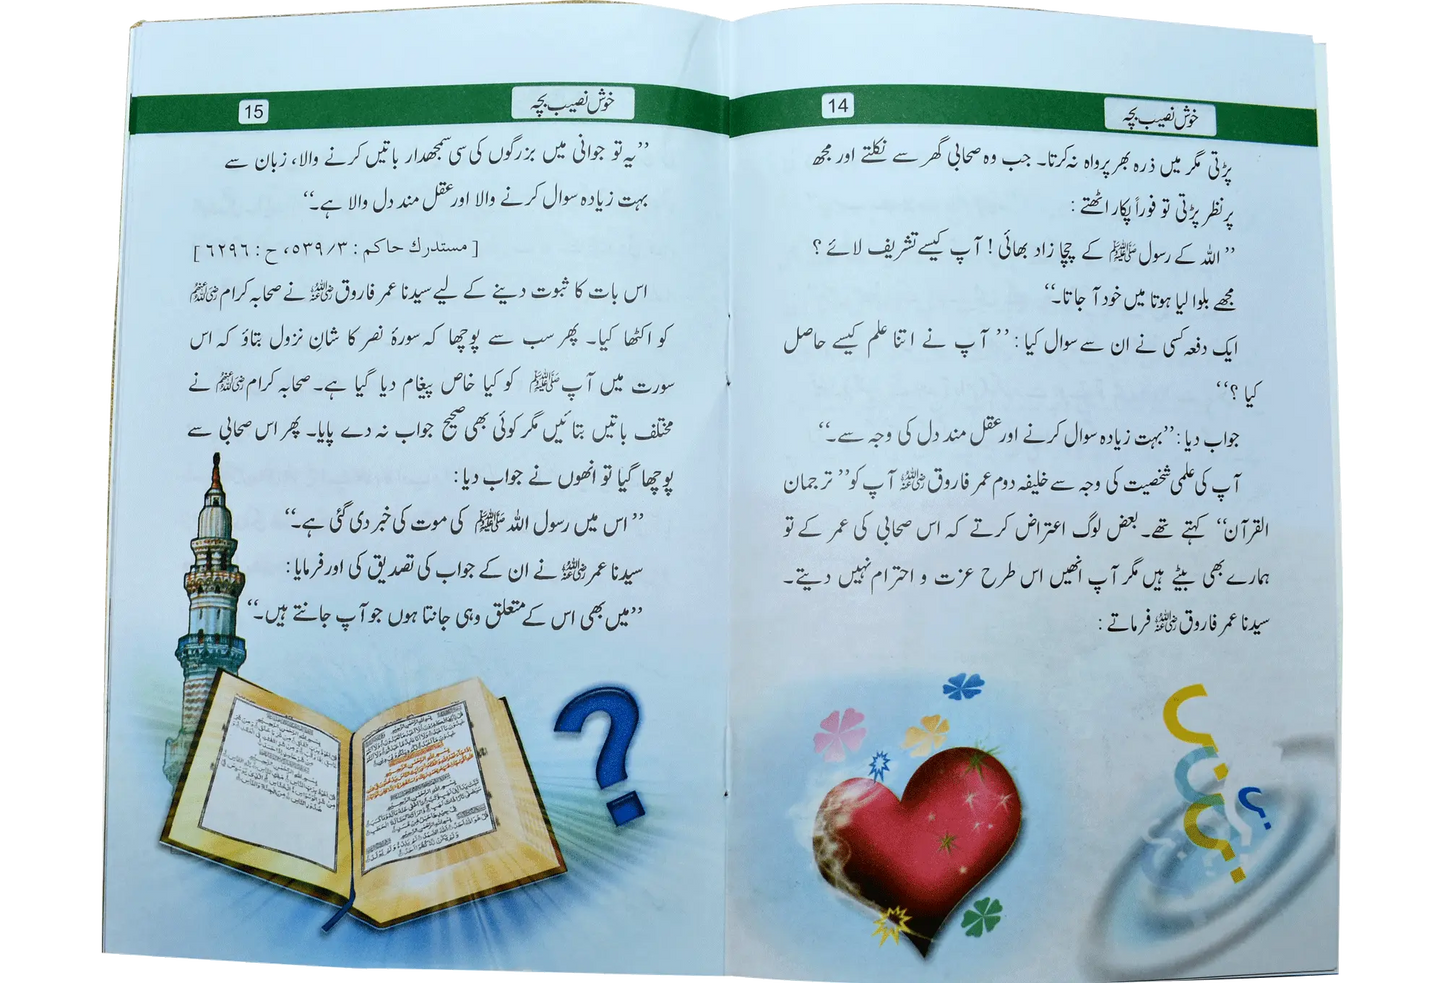 خوش نصیب بچہ
14
پڑتی مگر میں ذرہ بھر پرواہ نہ کرتا۔ جب وہ صحابی گھر سے نکلتے اور مجھ
پر نظر پڑتی تو فوراً پکار اٹھتے :
’’ اللہ کے رسول ﷺ کے چچا زاد بھائی ! آپ کیسے تشریف لائے ؟
مجھے بلوا لیا ہوتا میں خود آ جاتا۔‘‘
ایک دفعہ کسی نے ان سے سوال کیا : ’’ آپ نے اتنا علم کیسے حاصل
کیا ؟‘‘
جواب دیا : ’’بہت زیادہ سوال کرنے اور عقل مند دل کی وجہ سے۔‘‘
آپ کی علمی شخصیت کی وجہ سے خلیفہ دوم عمر فاروق رضی اللہ عنہ آپ کو ’’ ترجمان
القرآن‘‘ کہتے تھے۔ بعض لوگ اعتراض کرتے کہ اس صحابی کی عمر کے تو
ہمارے بھی بیٹے ہیں مگر آپ انھیں اس طرح عزت و احترام نہیں دیتے۔
سیدنا عمر فاروق رضی اللہ عنہ فرماتے :
خوش نصیب بچہ
15
’’یہ تو جوانی میں بزرگوں کی سی سمجھدار باتیں کرنے والا، زبان سے
بہت زیادہ سوال کرنے والا اور عقل مند دل والا ہے۔‘‘
[ مستدرك حاكم : ٥٣٩/٣، ح : ٦٢٩٦ ]
اس بات کا ثبوت دینے کے لیے سیدنا عمر فاروق رضی اللہ عنہ نے صحابہ کرام رضی اللہ عنہم
کو اکٹھا کیا۔ پھر سب سے پوچھا کہ سورۂ نصر کا شانِ نزول بتاؤ کہ اس
سورت میں آپ ﷺ کو کیا خاص پیغام دیا گیا ہے۔ صحابہ کرام رضی اللہ عنہم نے
مختلف باتیں بتائیں مگر کوئی بھی صحیح جواب نہ دے پایا۔ پھر اس صحابی سے
پوچھا گیا تو انھوں نے جواب دیا :
’’ اس میں رسول اللہ ﷺ کی موت کی خبر دی گئی ہے۔‘‘
سیدنا عمر رضی اللہ عنہ نے ان کے جواب کی تصدیق کی اور فرمایا :
’’میں بھی اس کے متعلق وہی جانتا ہوں جو آپ جانتے ہیں۔‘‘
؟
؟